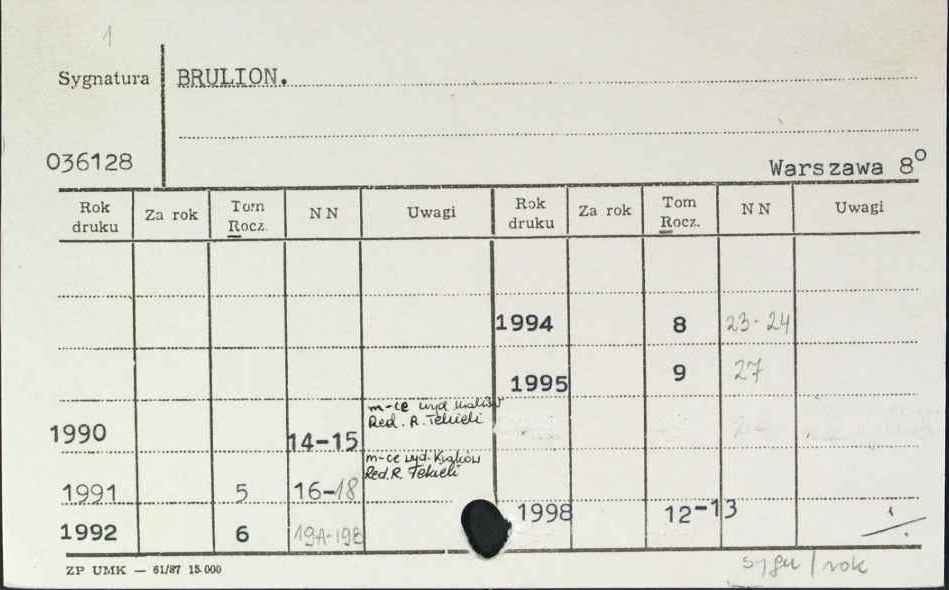 1
Sygnatura BRULION.
036128
Warszawa 8°
Rok druku Za rok Tom Rocz. NN Uwagi Rok druku Za rok Tom Rocz. NN Uwagi
1994 8 23-24
1995 9 27
m-ce wyd Kraków
Red. R. Tekieli
1990 14-15
m-ce wyd. Kraków
Red. R. Tekieli
1991 5 16-18
1998 12-13
1992 6 19A-19B
ZP UMK — 61/87 15.000
sygn / rok